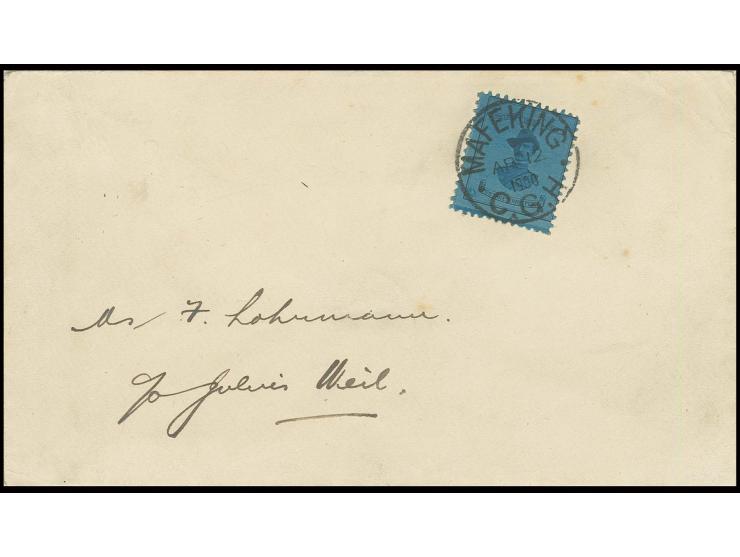 MAFEKING
AP 12
1900
C.G.H
Mr F. Lohrmann.
c/o Julius Weil.